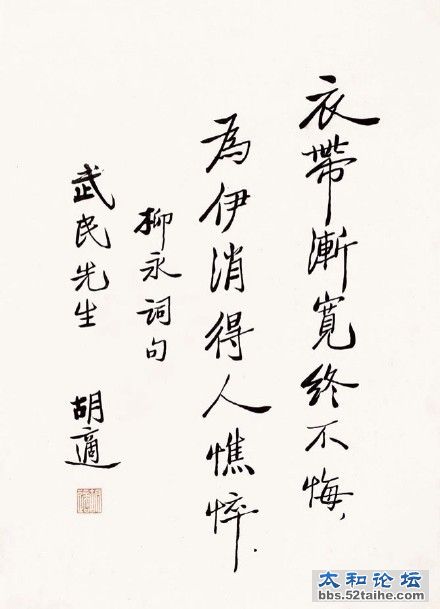 衣帶漸寬終不悔，
為伊消得人憔悴．
柳永詞句
武民先生
胡適
太和论坛
bbs.52taihe.com